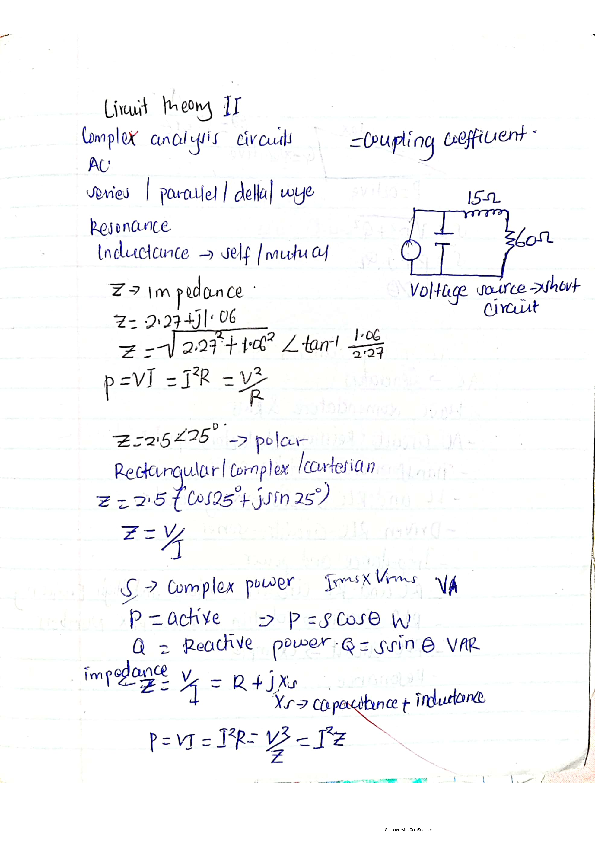 Circuit theory II
Complex analysis circuits
=coupling coefficient.
AC
series / parallel / delta / wye
Resonance
Inductance → self / mutual
15Ω
60Ω
Voltage source → short
circuit
Z → impedance.
Z = 2.27+j1.06
Z = √2.27²+1.06² ∠tan-1 1.06/2.27
P = VI = I²R = V²/R
Z = 2.5∠25° → polar
Rectangular / complex / cartesian
Z = 2.5 (cos25°+jsin 25°)
Z = V/I
S → complex power Irms x Vrms VA
P = active ⇒ P = S cosθ W
Q = Reactive power. Q = S sin θ VAR
impedance
Z = V/I = R + jXs
Xs → capacitance + inductance
P = VI = I²R = V²/Z = I²Z